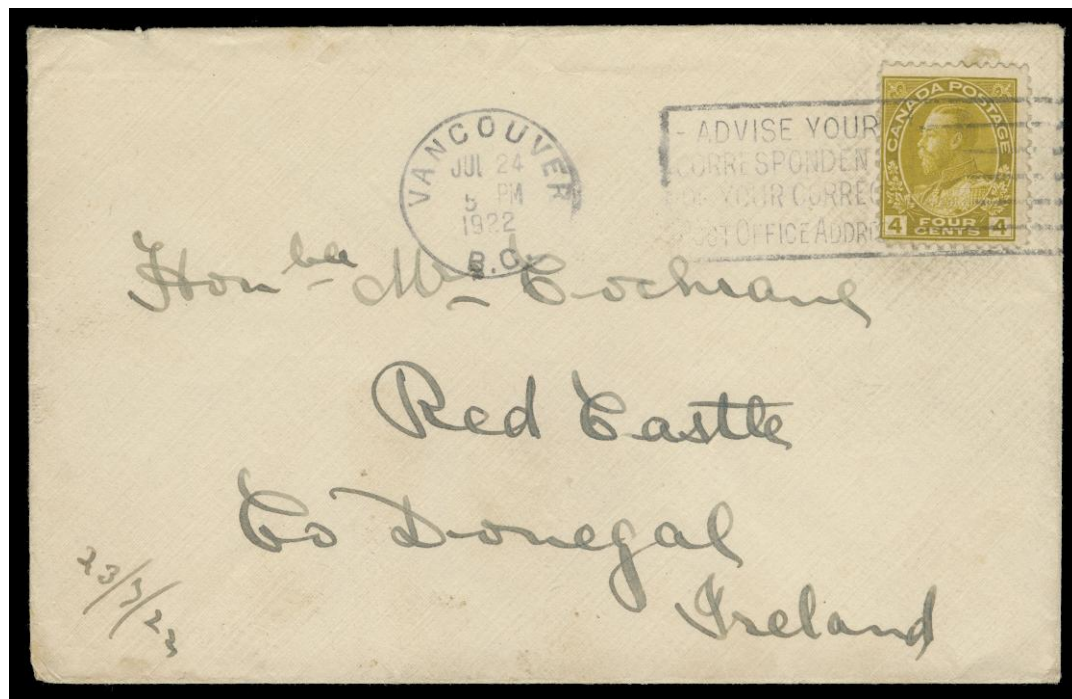 VANCOUVER
JUL 24
5 PM
1922
B.C.
- ADVISE YOUR
CORRESPONDEN
OF YOUR CORREC
POST OFFICE ADDR
CANADA POSTAGE
4 FOUR CENTS 4
Honble Mr Cochrane
Red Castle
Co Donegal
Ireland